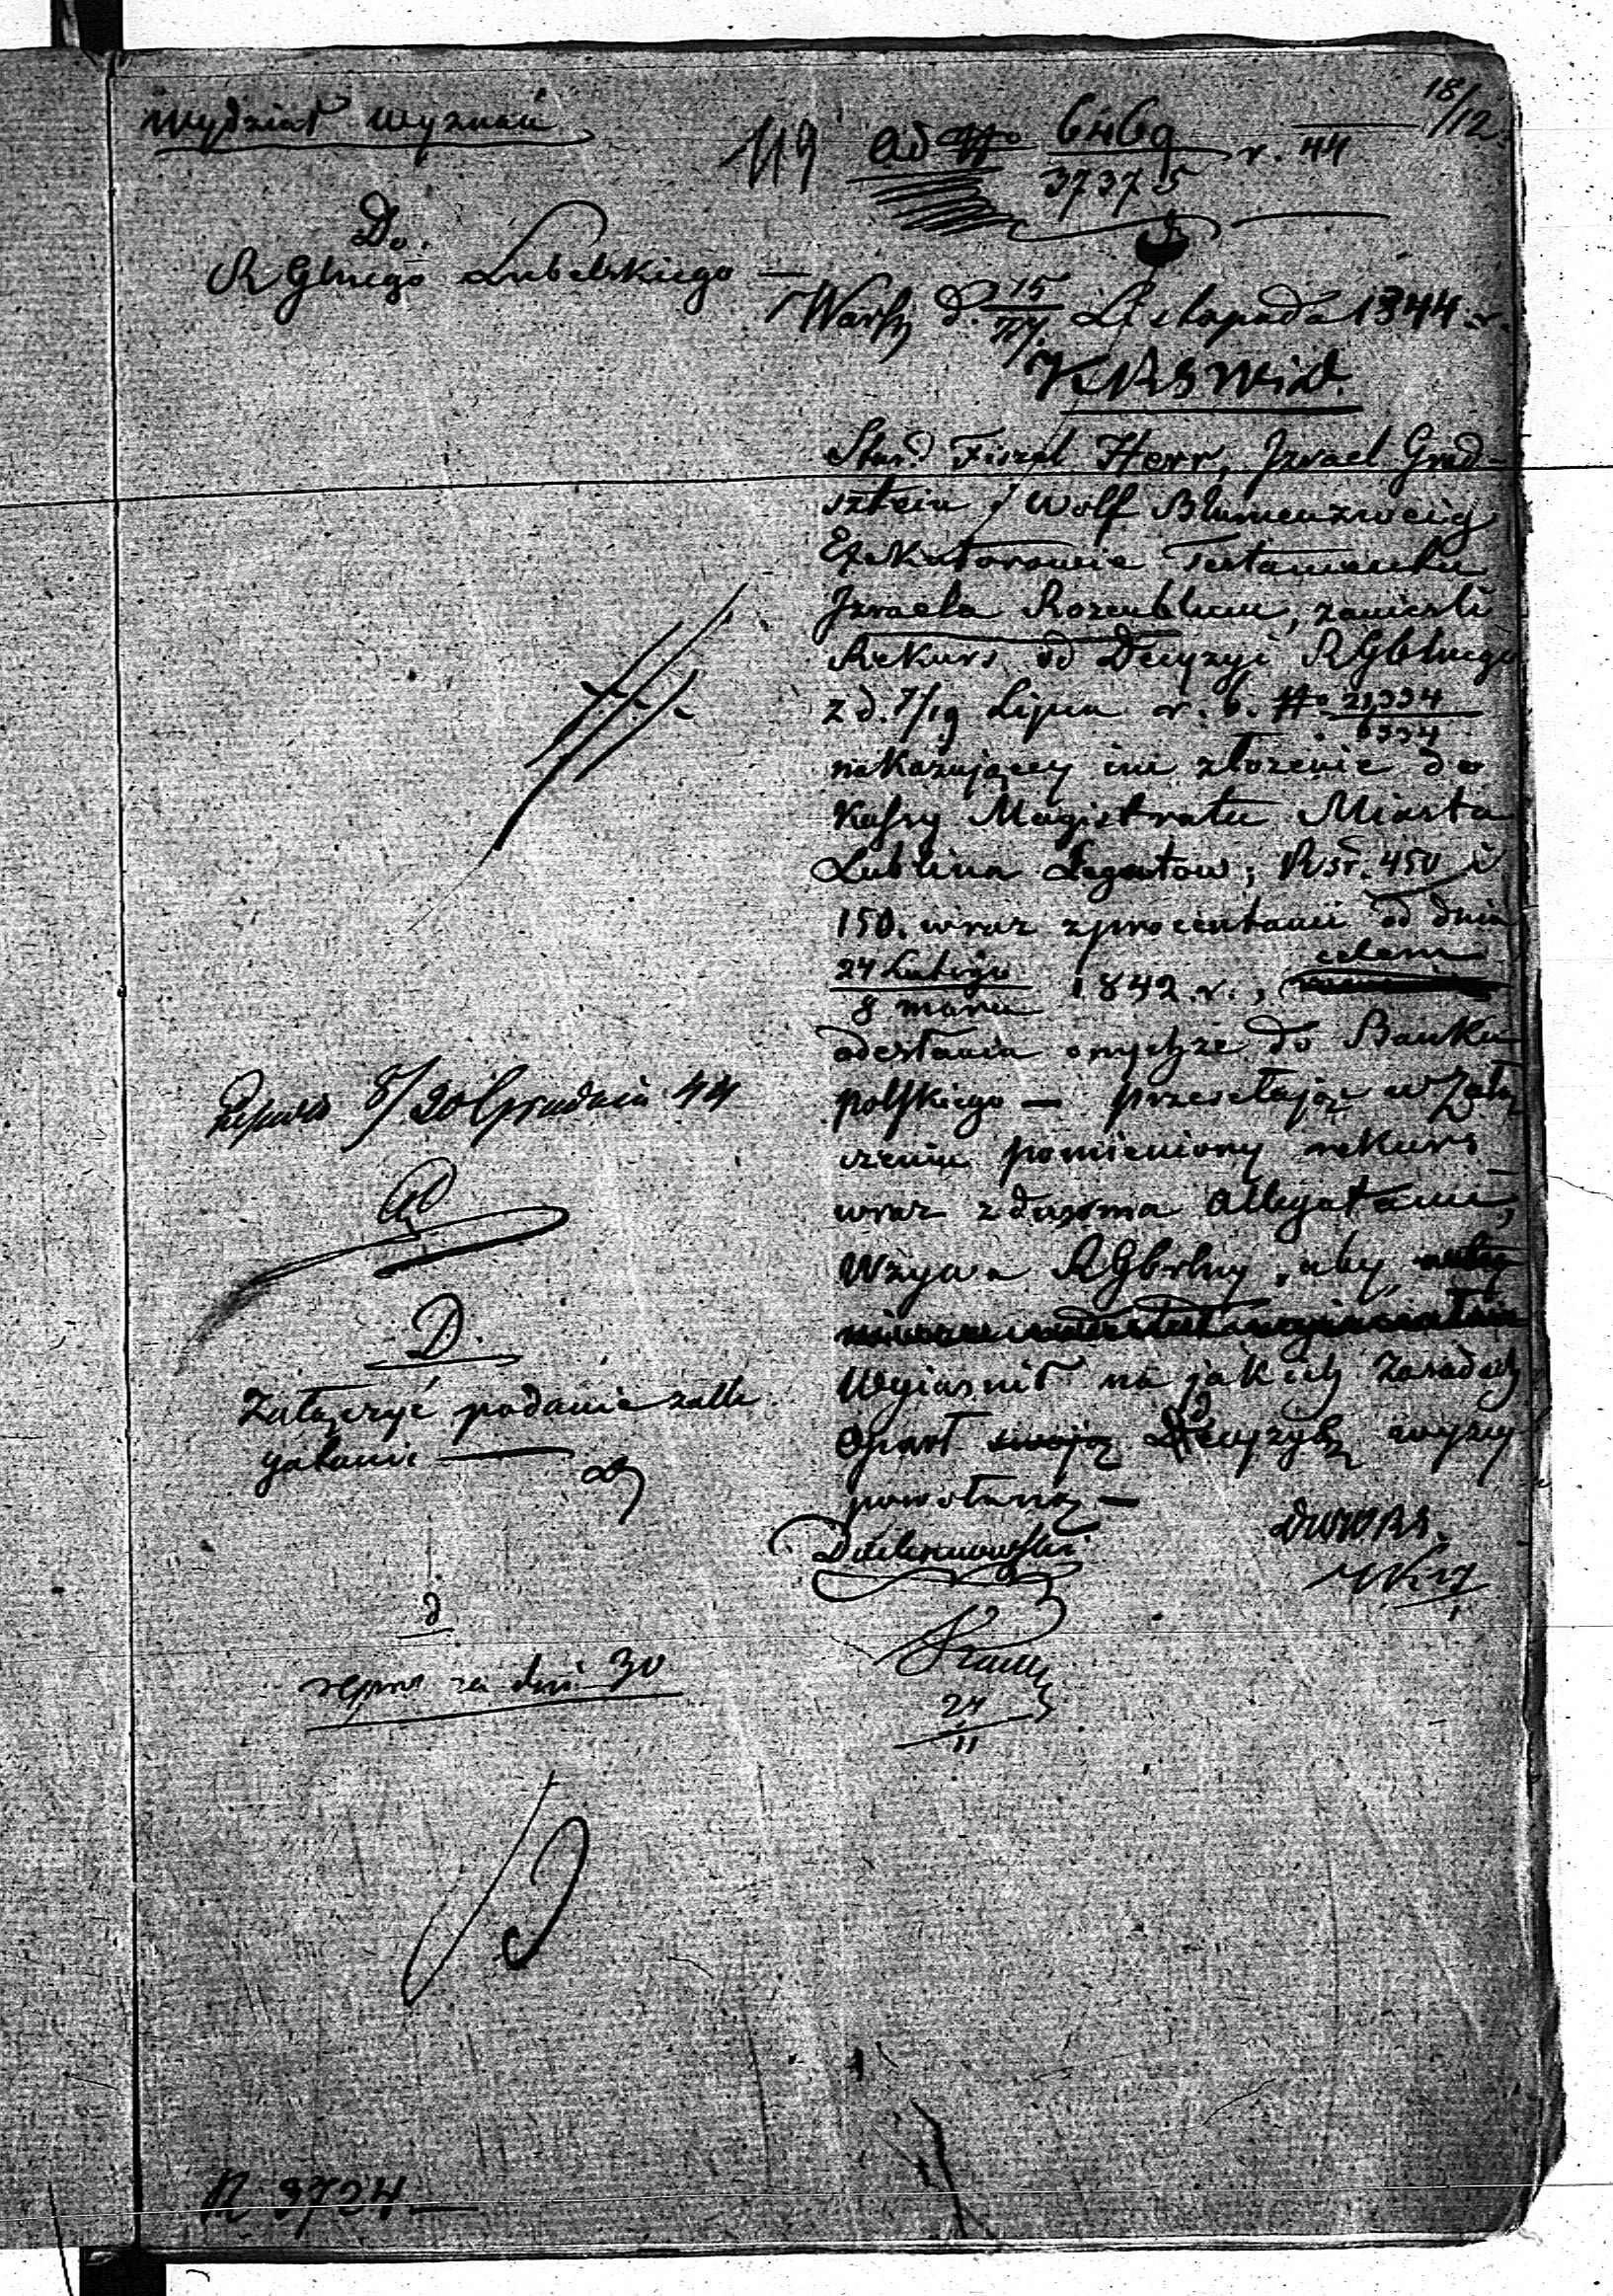 Wydział Wyznań
18/12
119 ad No 6469/37375 r. 44
Do
RGlnego Lubelskiego —
Warsz d. 15/27 Listopada 1844 r.
KRSWiD.
Star. Fiszel Herr, Izrael Grad-
sztein i Wolf Blumenzweig
Exekutorowie Testamentu
Izraela Rozenblum, zanieśli
Rekurs od Decyzyi RGblnego
z d. 7/19 Lipca r. b. No 21,334/6334
nakazującey im złożenie do
Kassy Magistratu Miasta
Lublina Legatow; Rsr. 450 i
150. wraz z procentami od dnia
24 Lutego/8 marca 1842 r., celem
odesłania onychże do Banku
polskiego — przesełając w Załą
czeniu pomieniony rekurs
wraz z dwoma allegatami,
Wzywa RGbrlny, aby
wyiasnił na jakich zasadach
oparł swoją Decyzyą wyzey
powołaną —
8/20 Grudnia 44
D.
Załączyć podanie z alle
gatami —
d
repro za dni 30
24/11
R 9724 —